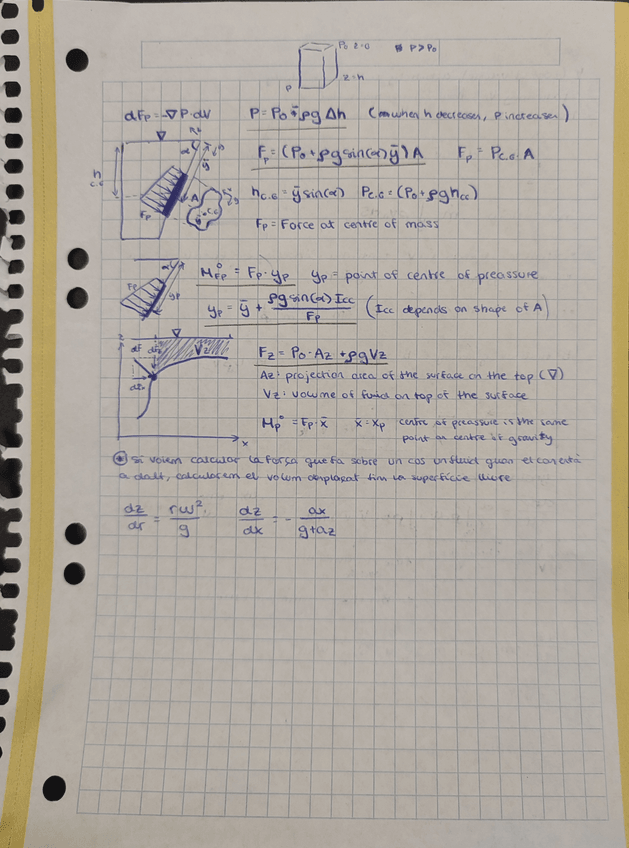 P₀ z=0 P>P₀
z=h
P
dFp=-∇P·dV P=P₀+ρgΔh (when h decreases, p increases)
Fp=(P₀+ρgsin(α)ȳ)A Fp=P_C.G·A
h_C.G=ȳsin(α) P_C.G=(P₀+ρgh_CG)
Fp=Force at centre of mass
h C.G
α
ȳ
A
C.G
Fp
M°_Fp=Fp·yp yp=point of centre of preassure
yp=ȳ+ρgsin(α)Icc/Fp (Icc depends on shape of A)
α
Fp
yp
z
dF
Vz
Fz=P₀·Az+ρgVz
Az: projection area of the surface on the top (∇)
Vz: volume of fluid on top of the surface
M°p=Fp·x̄ x̄=xp centre of preassure is the same
point as centre of gravity
x
* Si volem calcular la força que fa sobre un cos un fluid quan el cos està
a dalt, calcularem el volum desplaçat fins la superficie lliure
dz/dr=rω²/g dz/dx=-ax/g+az